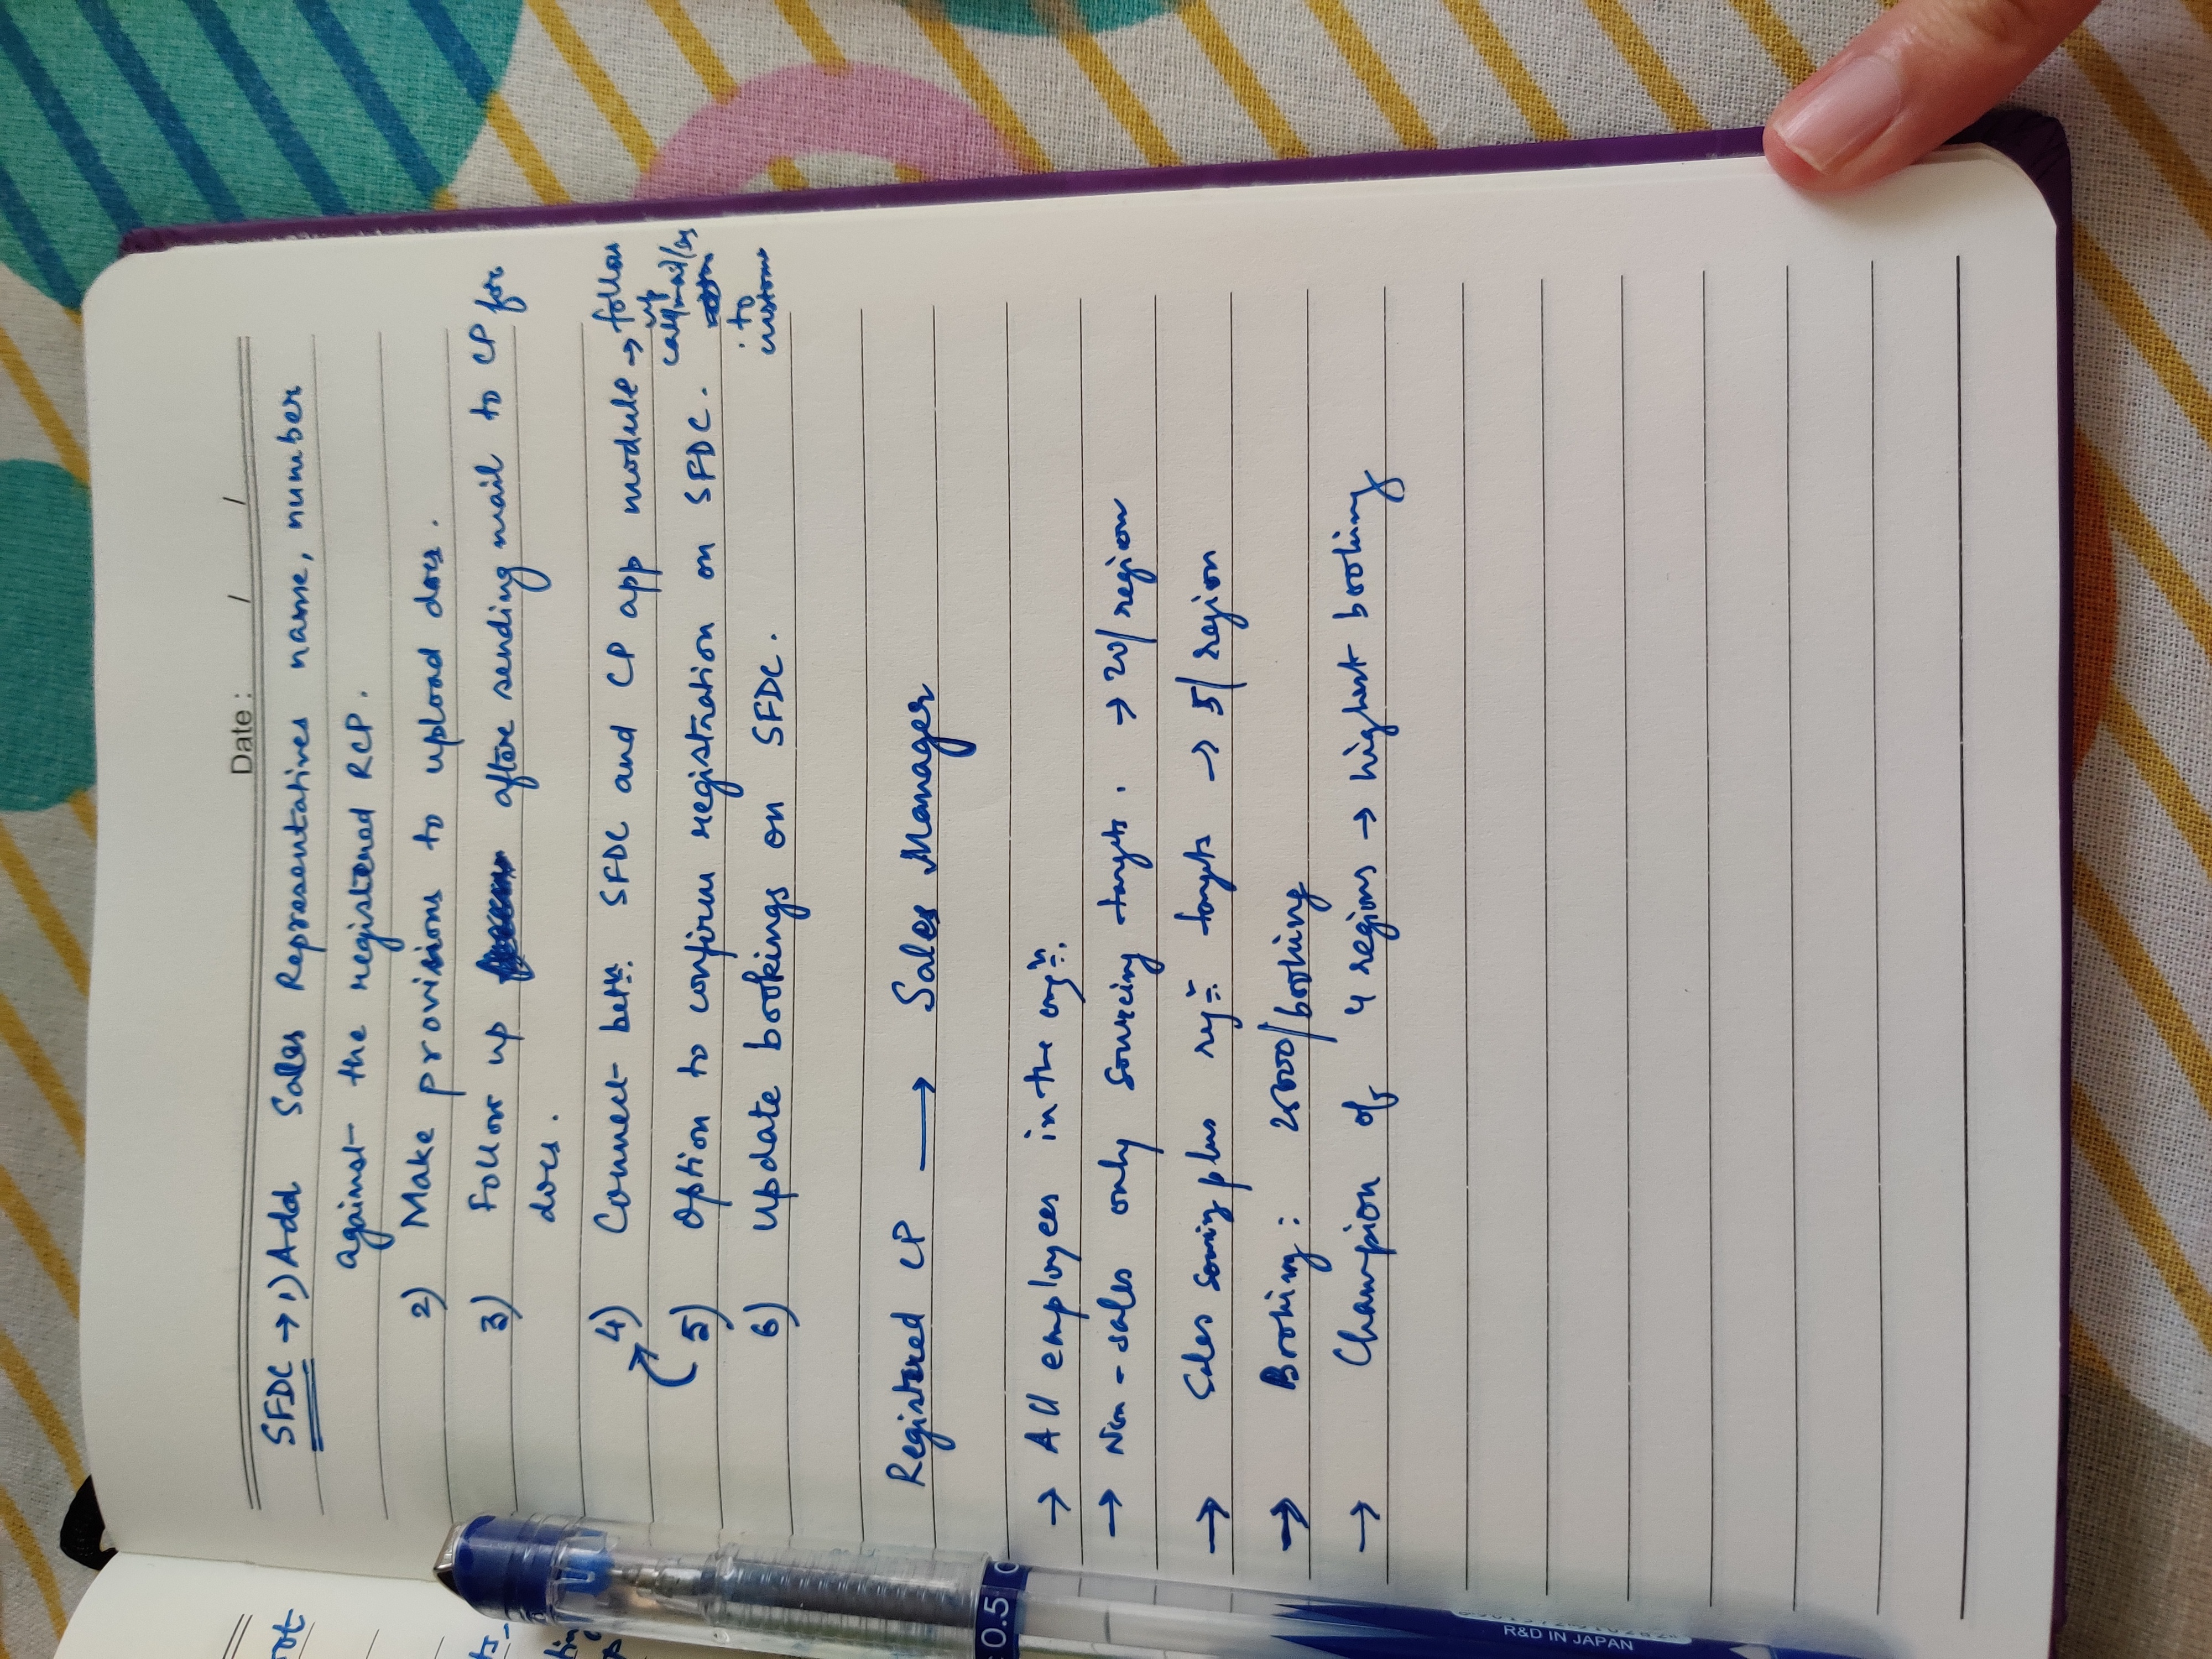 Date: / /
SFDC → 1) Add Sales Representatives name, number
against the registered RCP.
2) Make provisions to upload docs.
3) Follow up after sending mail to CP for
docs.
4) Connect betn. SFDC and CP app module → follow
up
call/mail/
5) Option to confirm registration on SFDC.
to
6) Update bookings on SFDC.
Registered CP → Sales Manager
→ All employees in the orgn.
→ Non-sales only sourcing targets. → 20/region
→ Sales plus targets → 5/region
→ Booking: /booking
→ Champion of 4 regions → highest booking
0.5
R&D IN JAPAN